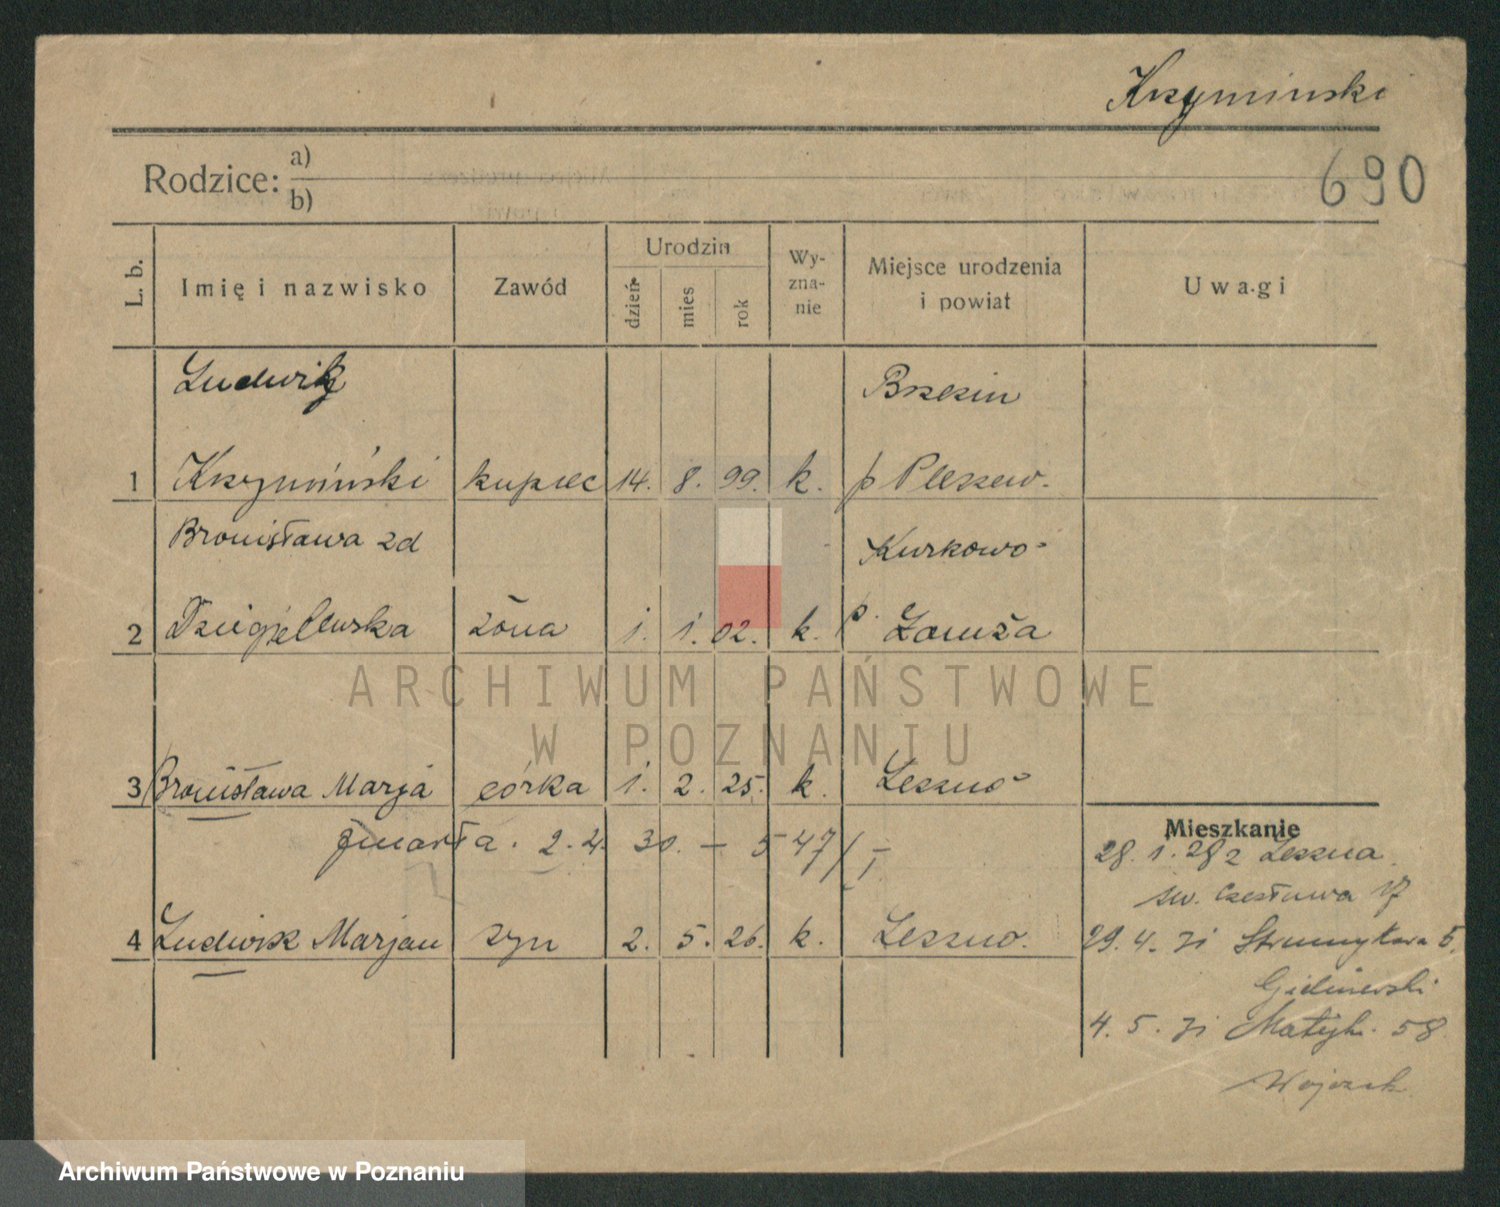 Krzyminski
690
Rodzice: a)
b)
L. b.
Imię i nazwisko
Zawód
Urodzin
dzień
mies
rok
Wy-
zna-
nie
Miejsce urodzenia
i powiat
Uwagi
Ludwik
Brzezin
1 Krzymiński kupiec 14. 8. 99. k. p Pleszew.
Bronisława zd
Kurkowo
2 żona 1. 1. 02. k. p. Łomża
ARCHIWUM PAŃSTWOWE
W POZNANIU
3 Bronisława Marja córka 1. 2. 25. k. Leszno
zmarła. 2. 4. 30. – 547/I
Mieszkanie
28. 1. 28 z Leszna
św. Czesława 17
4 Ludwik Marjan syn 2. 5. 26. k. Leszno.
29. 4. 31 Strumykowa 5.
4. 5. 31 Matejk. 58
Wojczak
Archiwum Państwowe w Poznaniu